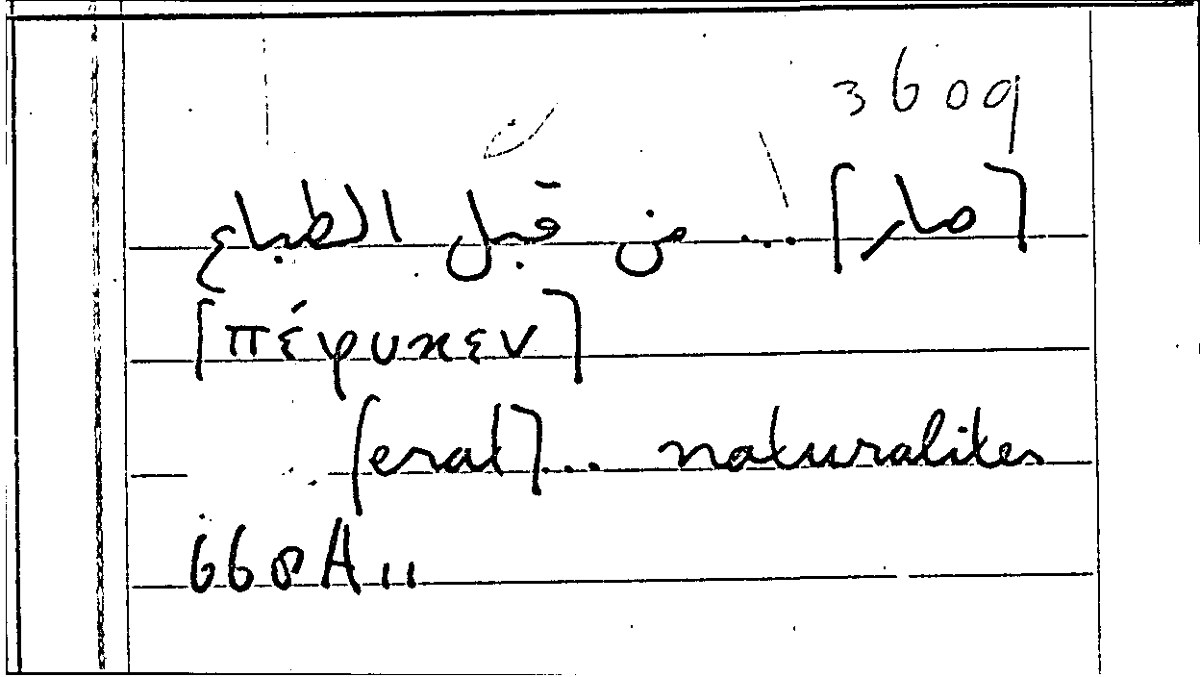 3609
[صار] ... من قبل الطباع
[πέφυκεν]
[erat] ... naturaliter
668A11